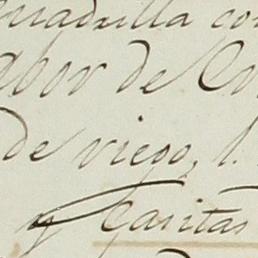 cuadrilla con
labor de Co
de viego, l.
y Caritas